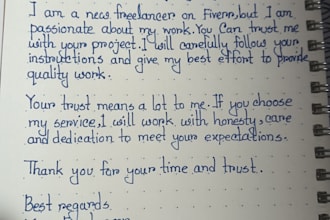 I am a new freelancer on Fiverr, but I am
passionate about my work. You Can trust me
with your project. I will carefully follow your
instructions and give my best effort to provide
quality work.
Your trust means a lot to me. If you choose
my service, I will work with honesty, care
and dedication to meet your expectations.
Thank you for your time and trust.
Best regards